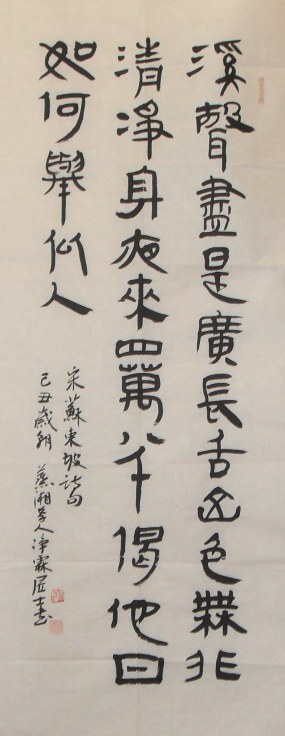 溪聲盡是廣長舌山色無非
清淨身夜來四萬八千偈他日
如何舉似人
宋蘇東坡詩句
己丑歲朝 蕉湘學人淨霖居士書